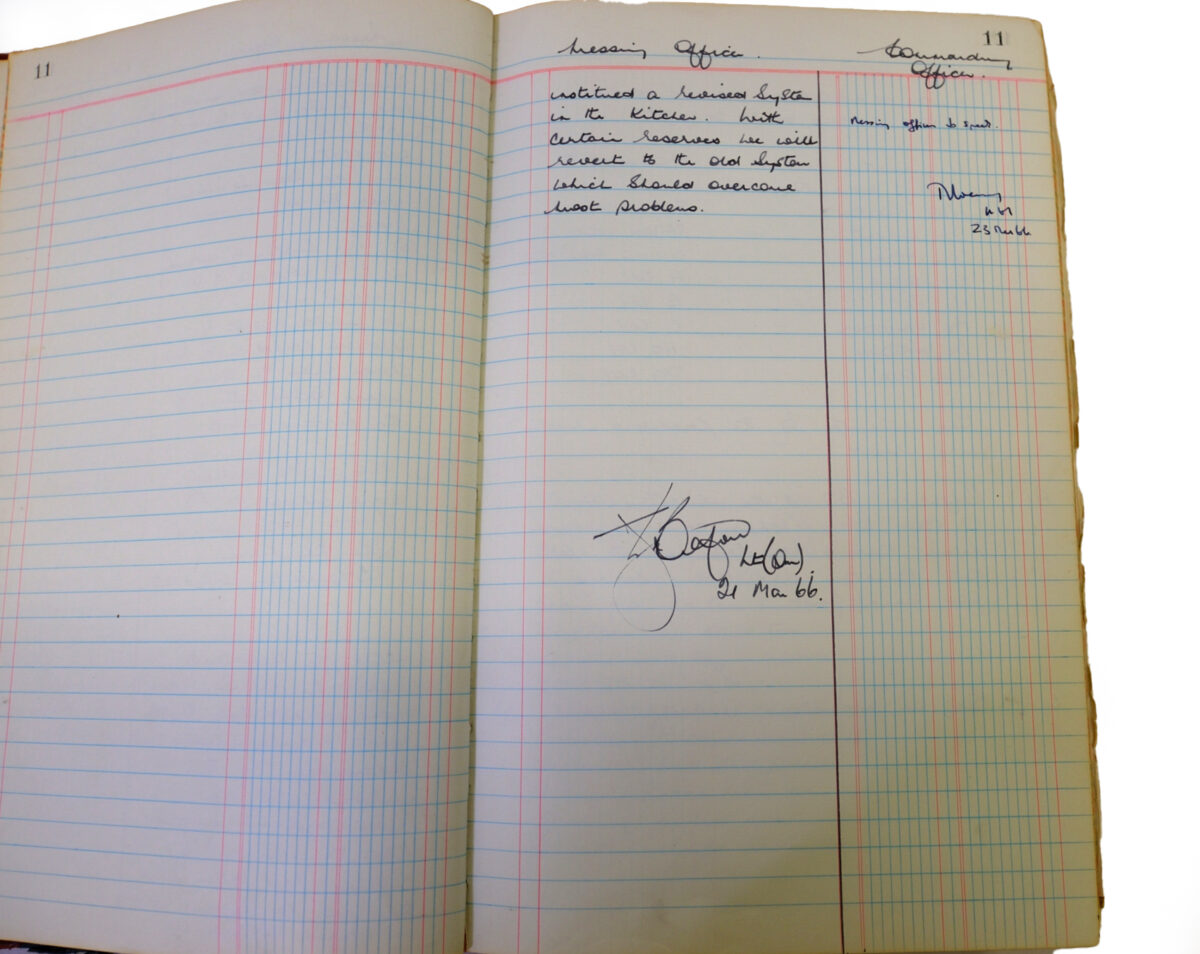 11
11
Messing Officer.
Commanding
Officer.
institued a revised System
in the Kitchen. With
certain reserves we will
revert to the old System
which should overcome
most problems.
Messing officer to speak.
23 Mar 66
Lt(Qm).
21 Mar 66.